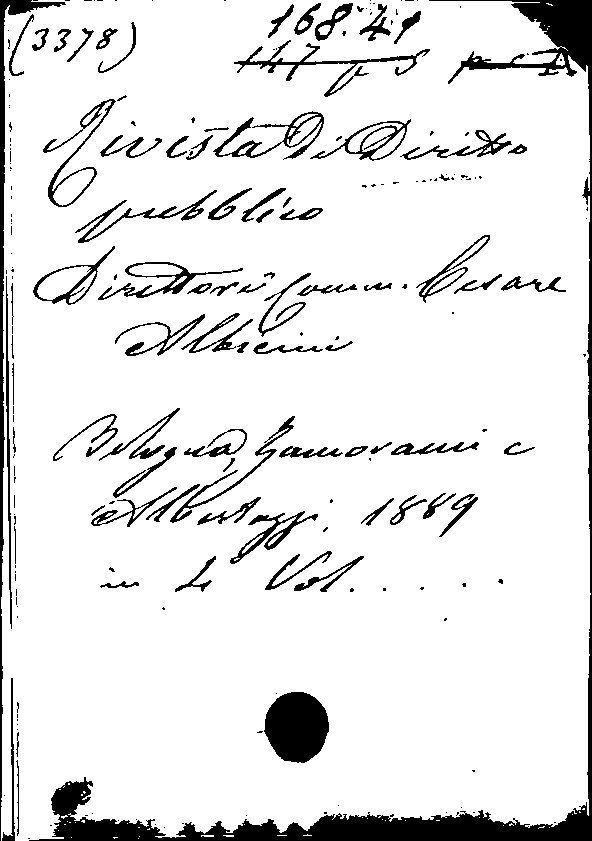 (3378) 168.41
147
Rivista Di Diritto
pubblico
Direttore Comm. Cesare
Albicini
Bologna, Zamorani e
Albertazzi, 1889
in 4° Vol. . . . . .